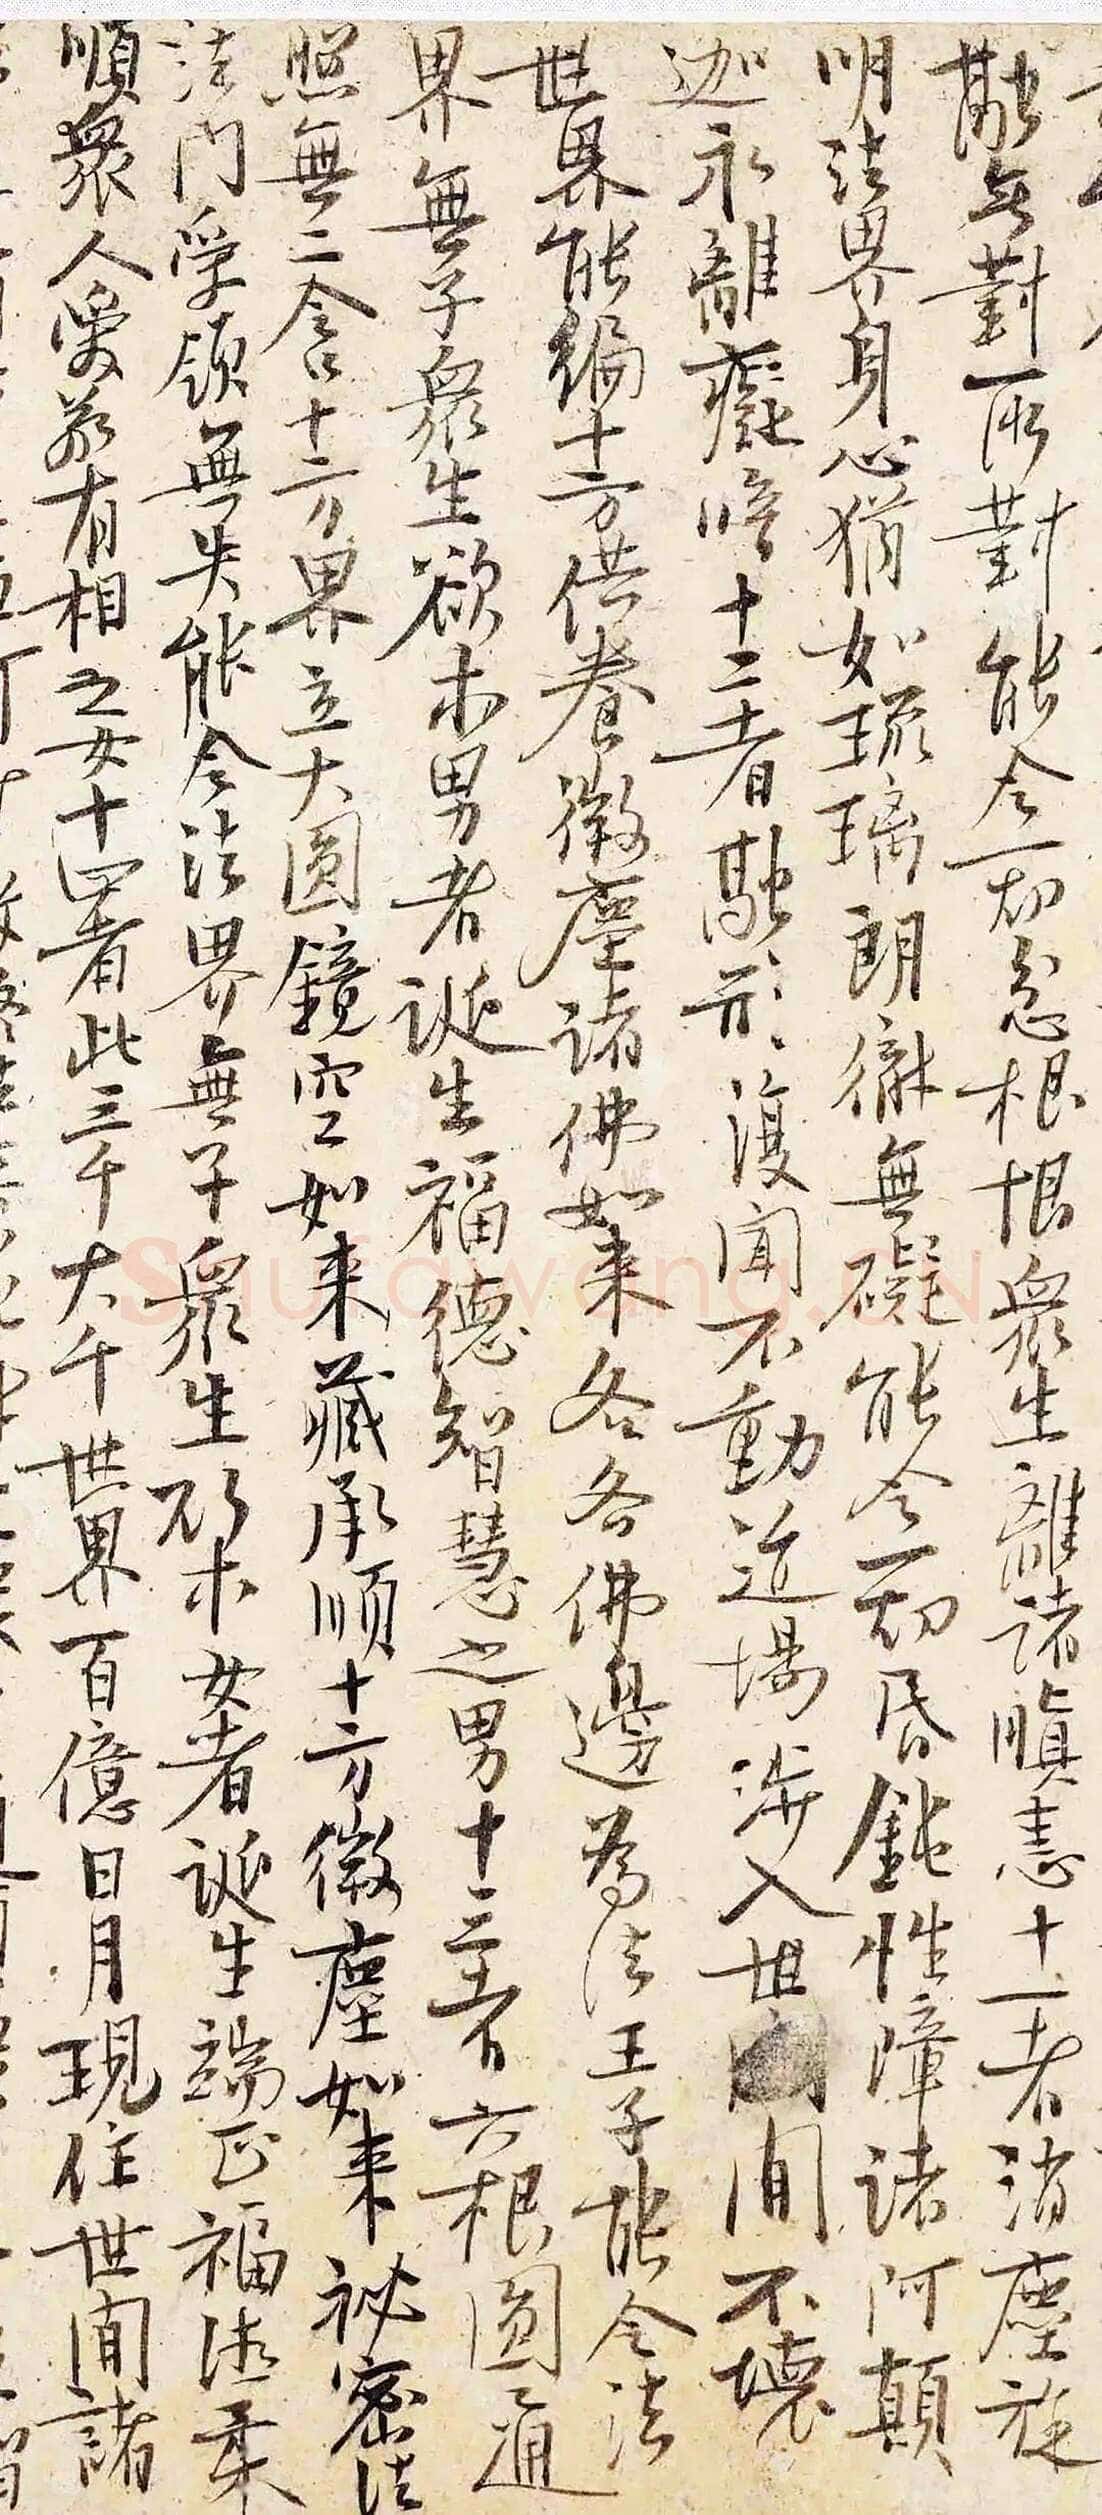 融無對所對能令一切忿根恨眾生離諸瞋恚十一者消塵旋
明法界身心猶如琉璃朗徹無礙能令一切昏鈍性障諸阿顛
迦永離癡暗十二者融形復聞不動道場涉入世間不壞
世界能徧十方供養微塵諸佛如来各各佛邊為法王子能令法
界無子眾生欲求男者誕生福德智慧之男十三者六根圓通
照無二含十方界立大圓鏡空如来藏承順十方微塵如来祕密法
法門受領無失能令法界無子眾生欲求女者誕生端正福德柔
順衆人愛敬有相之女十四者此三千大千世界百億日月現住世間諸